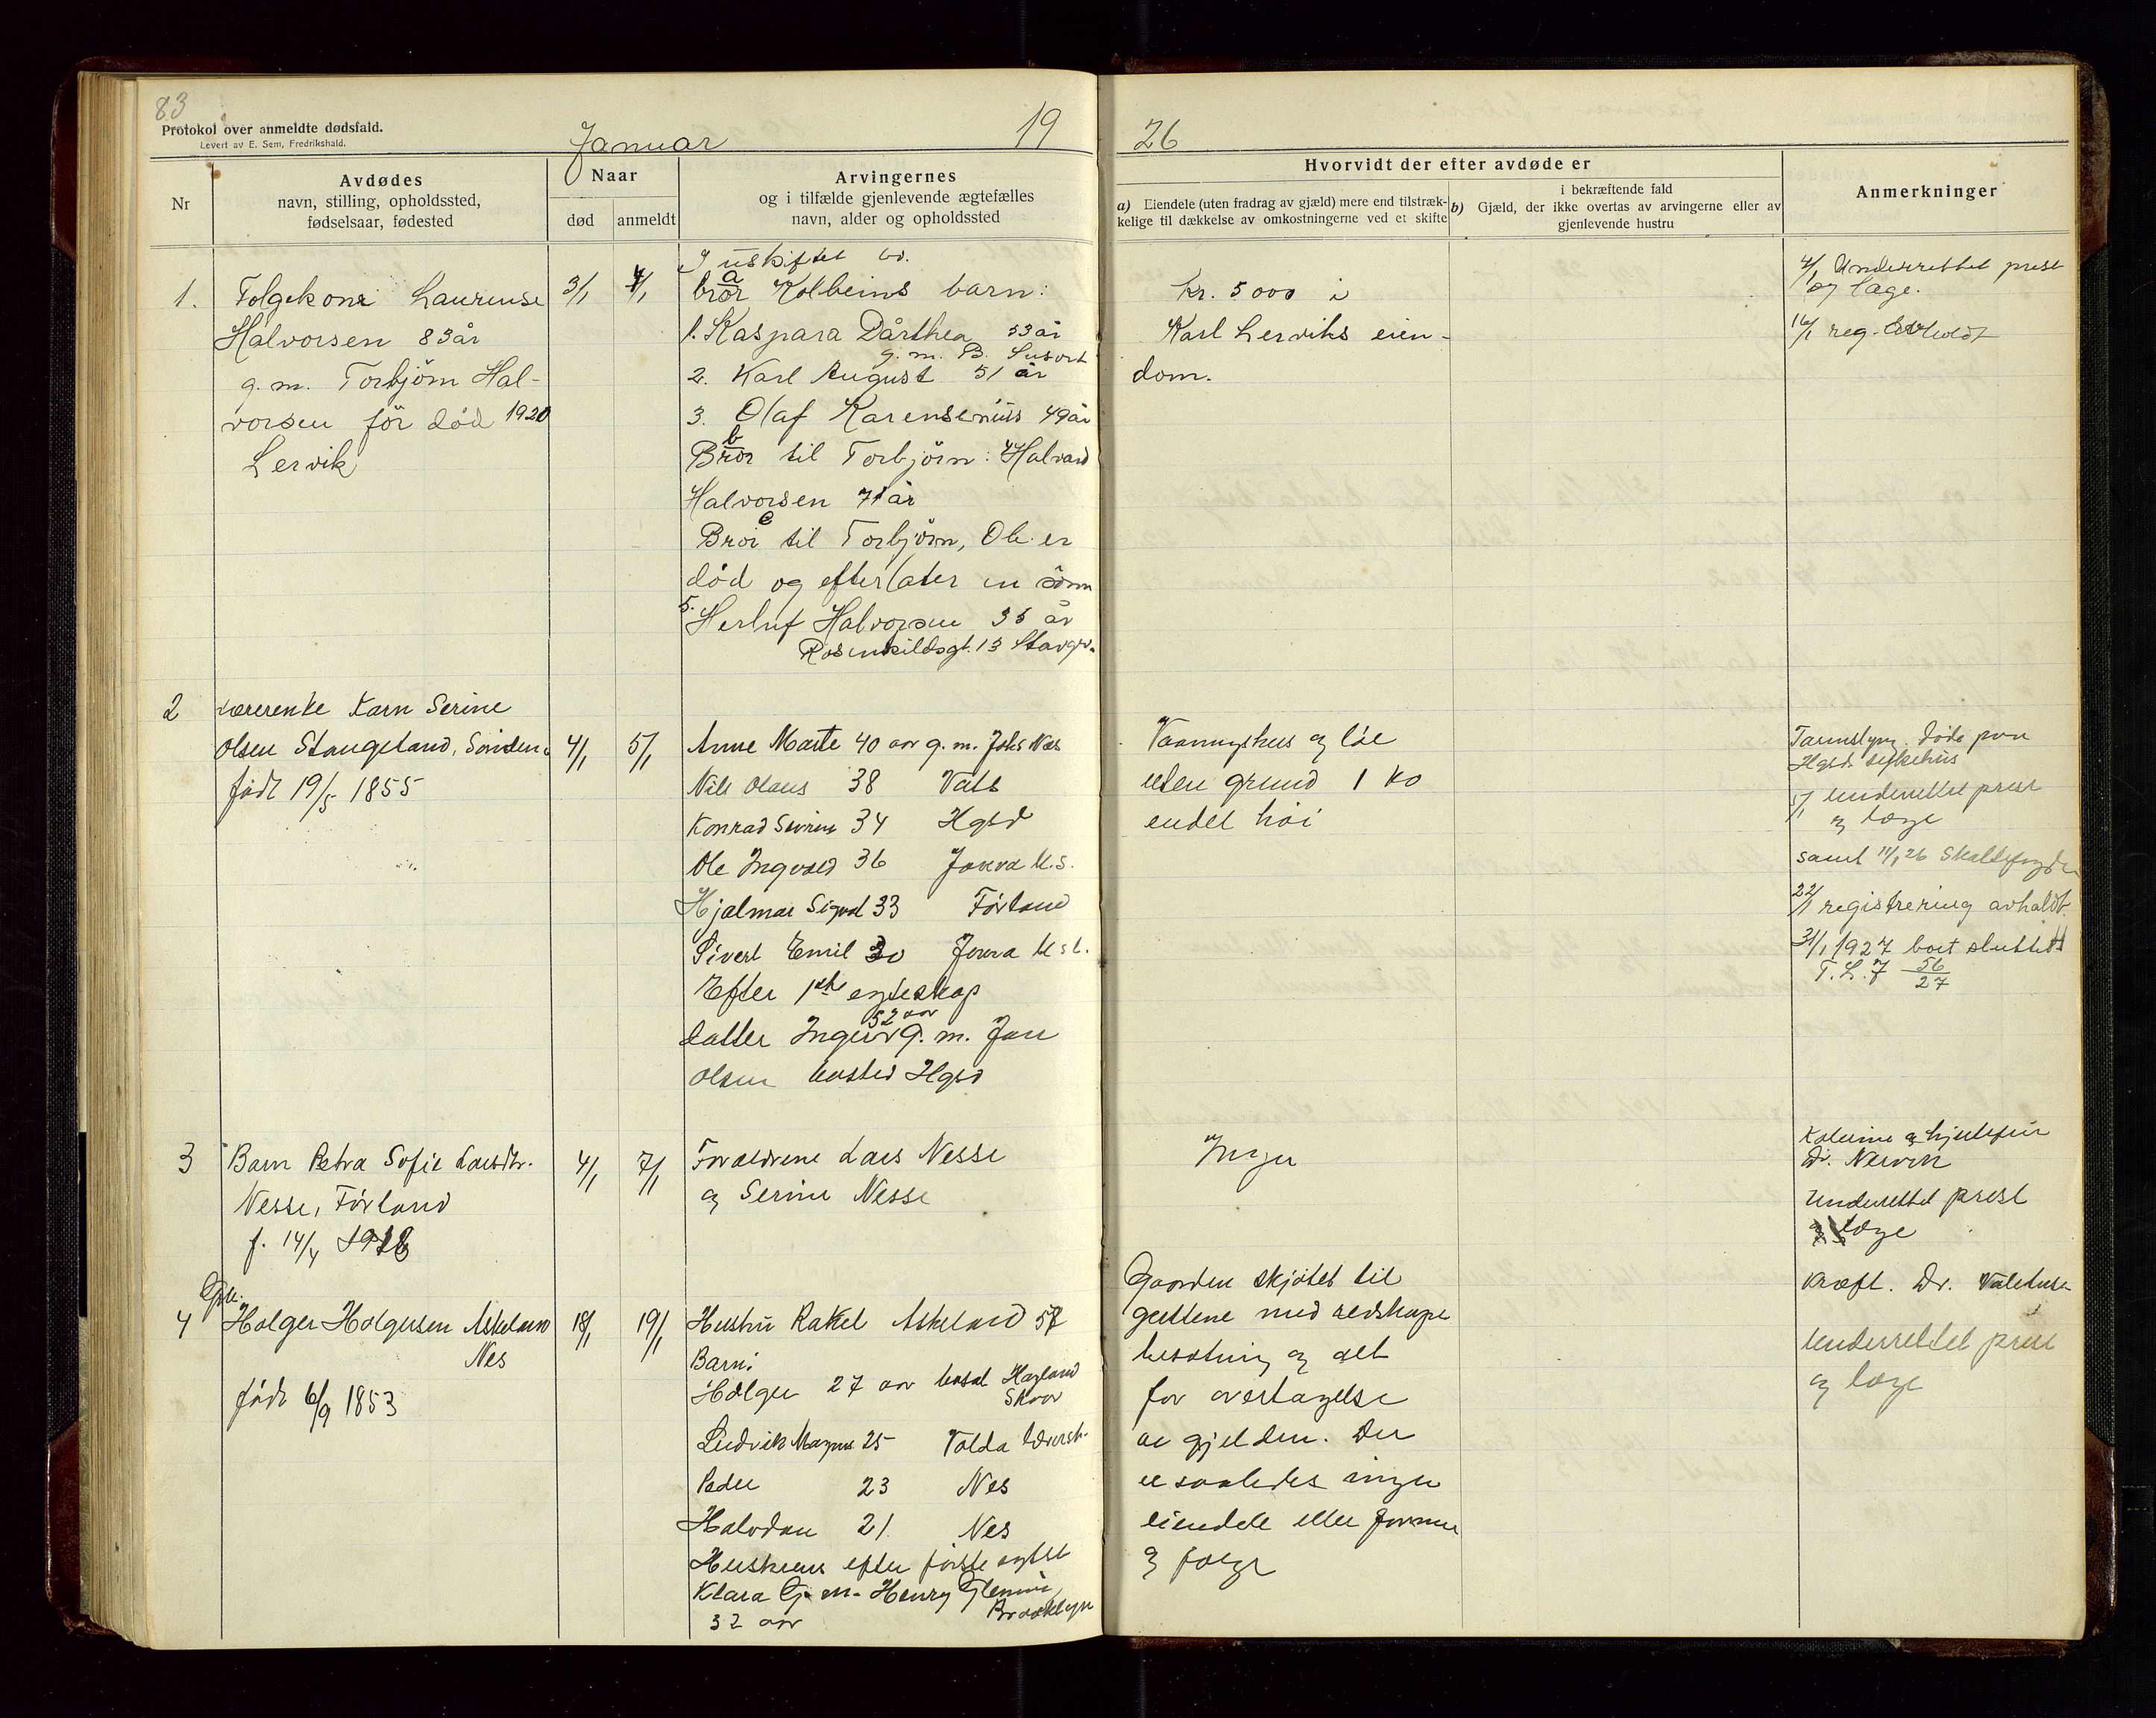 83
Protokol over anmeldte dødsfald.
Levert av E. Sem, Fredrikshald.
Januar
19
26
Nr
Avdødes
navn, stilling, opholdssted,
fødselsaar, fødested
Naar
død
anmeldt
Arvingernes
og i tilfælde gjenlevende ægtefælles
navn, alder og opholdssted
Hvorvidt der efter avdøde er
a) Eiendele (uten fradrag av gjæld) mere end tilstræk-
kelige til dækkelse av omkostningerne ved et skifte
i bekræftende fald
b) Gjæld, der ikke overtas av arvingerne eller av
gjenlevende hustru
Anmerkninger
1.
Folgekone Laurense
Halvorsen 83 år
g. m. Torbjörn Hal-
vorsen för död 1920
Lervik
3/1
4/1
I uskiftet bo.
a
bror Kolbeins barn:
1. Kaspara Dårthea 53 år
g. m. B.
2. Karl August 51 år
3. Olaf 49 år
b
Bror til Torbjörn: 4 Halvard
Halvorsen 71 år
c
Bror til Torbjörn, Ole er
död og efterlater en sönn
5. Herluf Halvorsen 35 år
Rosenkildsgt. 13 Stavgr.
Kr. 5000 i
Karl Lerviks eien-
dom.
4/1 Underrettet prest
og læge.
16/1 reg. avholdt
2
Lærerenke Karn Serine
Olsen Stangeland,
født 19/5 1855
4/1
5/1
Anne Marte 40 aar g. m. Johs Næs
Nils Olaus 38 Vats
Konrad 34 Hgsd
Ole Ingvald 36 U.S.
Hjalmar Sigval 33 Förland
Sivert Emil 30
Efter 1ste egteskap
52 aar
datter Inger g. m. Jan
Olsen bosted Hgsd
Vaaningshus og løe
uten grund 1 ko
endel høi
Tarmslyng. døde paa
Hgsd. sykehus
5/1 Underrettet prest
og læge
samt 11/1 26 Skattefogden
22/1 registrering avholdt.
31/1 1927 boet sluttet
T. L. 7 56/27
3
Barn Petra Sofie Larsdtr.
Nesse, Förland
f. 14/4
4/1
7/1
Forældrene Lars Nesse
og Serine Nesse
Ingen
Dr.
Underrettet prest
og læge
4
Gbr.
Holger Holgersen Askeland
Nes
født 6/9 1853
18/1
19/1
Hustru Rakel Askeland 57
Barn:
Holger 27 aar bosat Hagland
Skaar
Ludvik Magnus 25 Volda
Peder 23 Nes
Halvdan 21. Nes
efter förste egtsk
Klara G. m. Henry
Brooklyn
32 aar
Gaarden skjötet til
guttene med redskape
besætning og alt
for overtagelse
av gjelden. Der
er saaledes ingen
eiendele eller formue
Kræft. Dr.
Underrettet prest
og læge